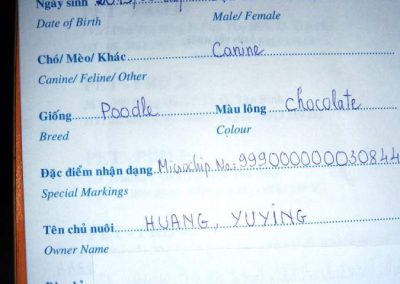 Ngày sinh
Date of Birth Male/ Female
Chó/ Mèo/ Khác Canine
Canine/ Feline/ Other
Giống Poodle Màu lông Chocolate
Breed Colour
Đặc điểm nhận dạng Microchip No: 999000000030844
Special Markings
Tên chủ nuôi HUANG, YUYING
Owner Name